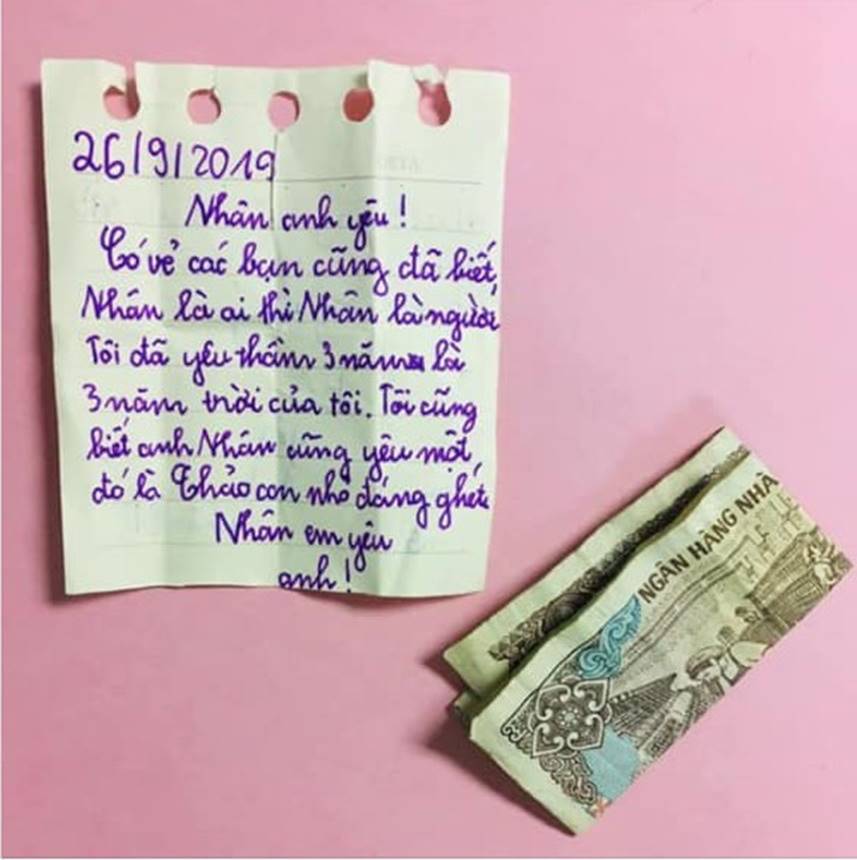 26/9/2019
Nhân anh yêu!
Có vẻ các bạn cũng đã biết,
Nhân là ai thì Nhân là người
Tôi đã yêu thầm 3 năm là
3 năm trời của tôi. Tôi cũng
biết anh Nhân cũng yêu một,
đó là Thảo con nhỏ đáng ghét
Nhân em yêu
anh!
NGÂN HÀNG NHÀ